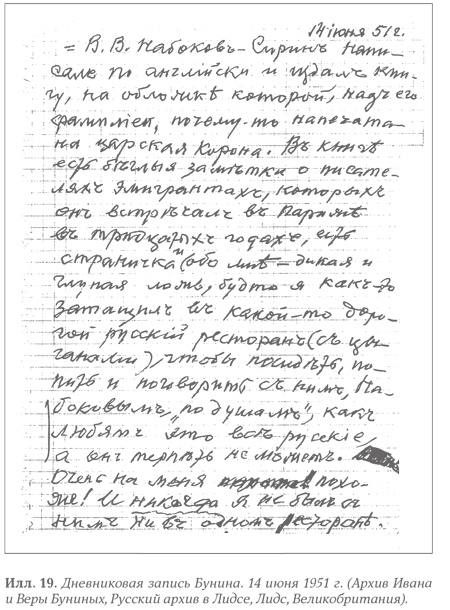 14 іюня 51 г.
= В. В. Набоковъ-Сиринъ напи-
салъ по англійски и издалъ кни-
гу, на обложкѣ которой, надъ его
фамиліей, почему-то напечата-
на царская корона. Въ книгѣ
есть бѣглыя замѣтки о писате-
ляхъ эмигрантахъ, которыхъ
онъ встрѣчалъ въ Парижѣ
въ тридцатыхъ годахъ, есть
страничка и обо мнѣ – дикая и
глупая ложь, будто я какъ-то
затащилъ въ какой-то доро-
гой русскій ресторанъ (съ цы-
ганами), чтобы посидѣть, по-
пить и поговорить съ нимъ, На-
боковымъ, „по душамъ“, какъ
любятъ это всѣ русскіе,
а онъ терпѣть не можетъ.
Очень на меня похо-
же! И никогда я не былъ съ
нимъ ни въ одномъ ресторанѣ.
Илл. 19. Дневниковая запись Бунина. 14 июня 1951 г. (Архив Ивана
и Веры Буниных, Русский архив в Лидсе, Лидс, Великобритания).